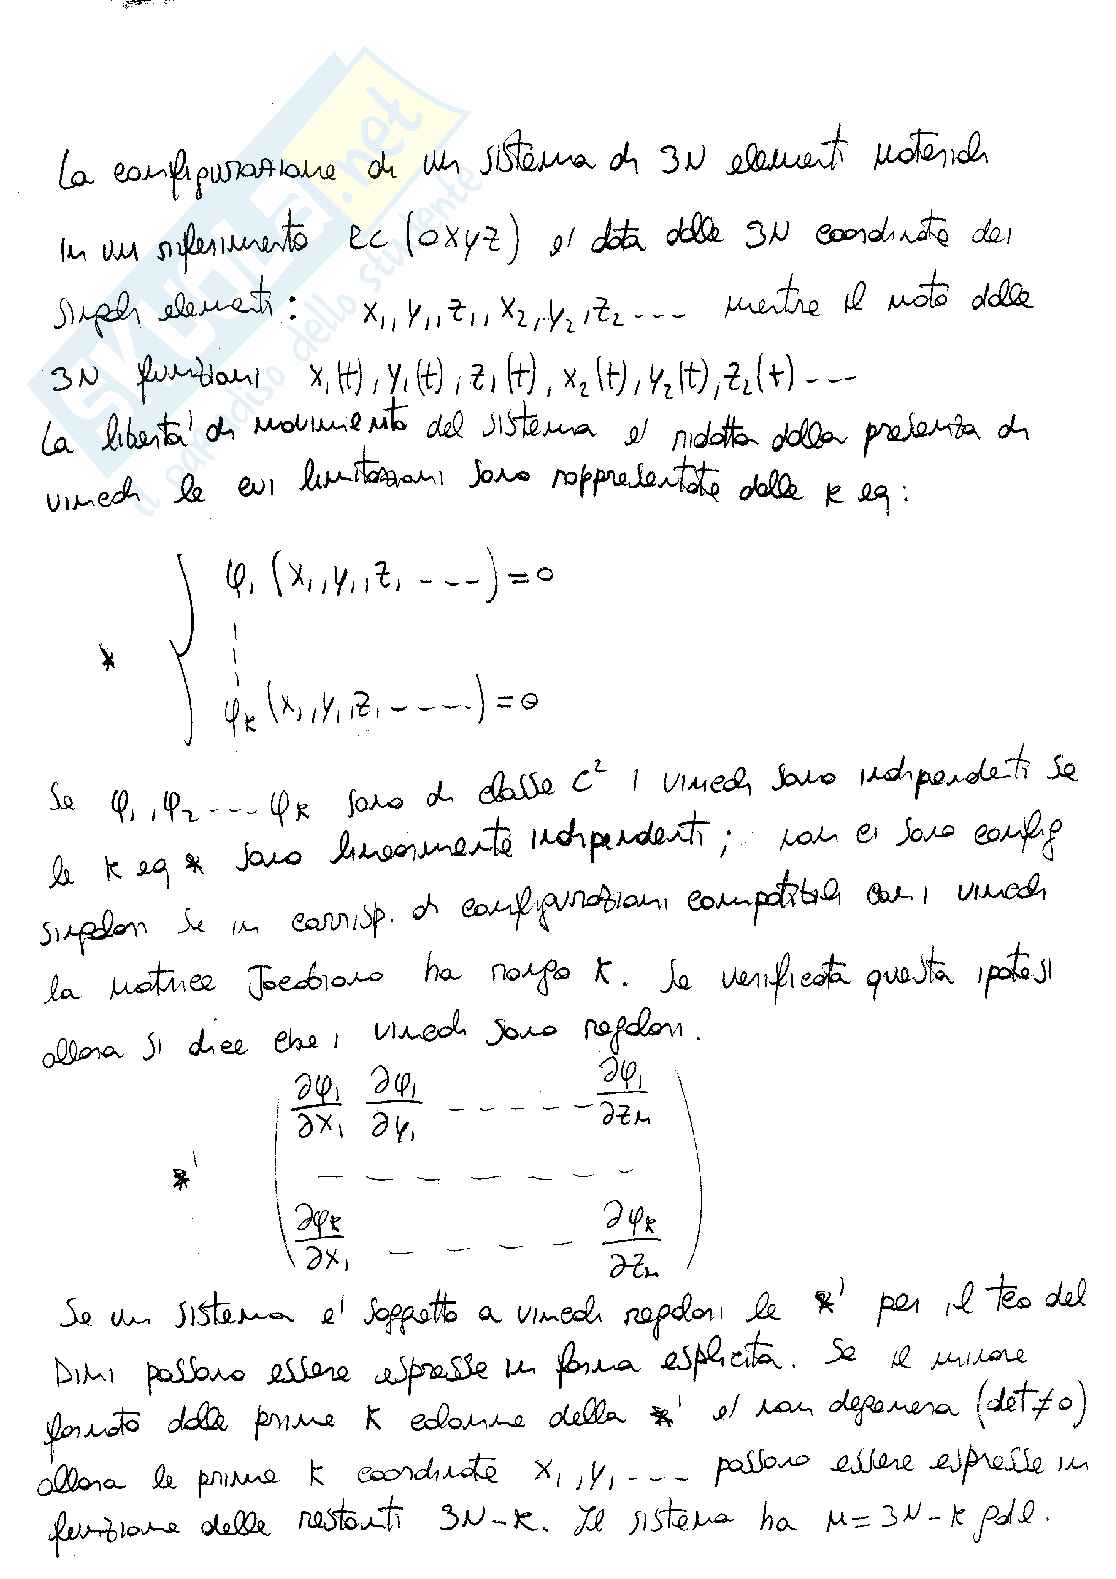 La configurazione di un sistema di 3N elementi materiali
in un riferimento RC (OXYZ) e' data dalle 3N coordinate dei
singoli elementi: x₁, y₁, z₁, x₂, y₂, z₂ ---- mentre il moto dalle
3N funzioni x₁(t), y₁(t), z₁(t), x₂(t), y₂(t), z₂(t) ---
La liberta' di movimento del sistema e' ridotta dalla presenza di
vincoli le cui limitazioni sono rappresentate dalle k eq:
φ₁ (x₁, y₁, z₁ ----) = 0
*
φₖ (x₁, y₁, z₁ -----) = 0
Se φ₁, φ₂ --- φₖ sono di classe C² i vincoli sono indipendenti se
le k eq * sono linearmente indipendenti; non ci sono config
singolari se in corrisp. di configurazioni compatibili con i vincoli
la matrice Jacobiano ha rango k. Se verificata questa ipotesi
allora si dice che i vincoli sono regolari.
∂φ₁/∂x₁ ∂φ₁/∂y₁ ------ ∂φ₁/∂zₙ
*' - - - - - - -
∂φₖ/∂x₁ - - - - - ∂φₖ/∂zₙ
Se un sistema e' soggetto a vincoli regolari le *' per il teo del
Dini possono essere espresse in forma esplicita. Se il minore
formato dalle prime k colonne della *' e' non degenera (det≠0)
allora le prime k coordinate x₁, y₁ --- possono essere espresse in
funzione delle restanti 3N-k. Il sistema ha n=3N-k gdl.
SKUOLA.net
il paradiso dello studente